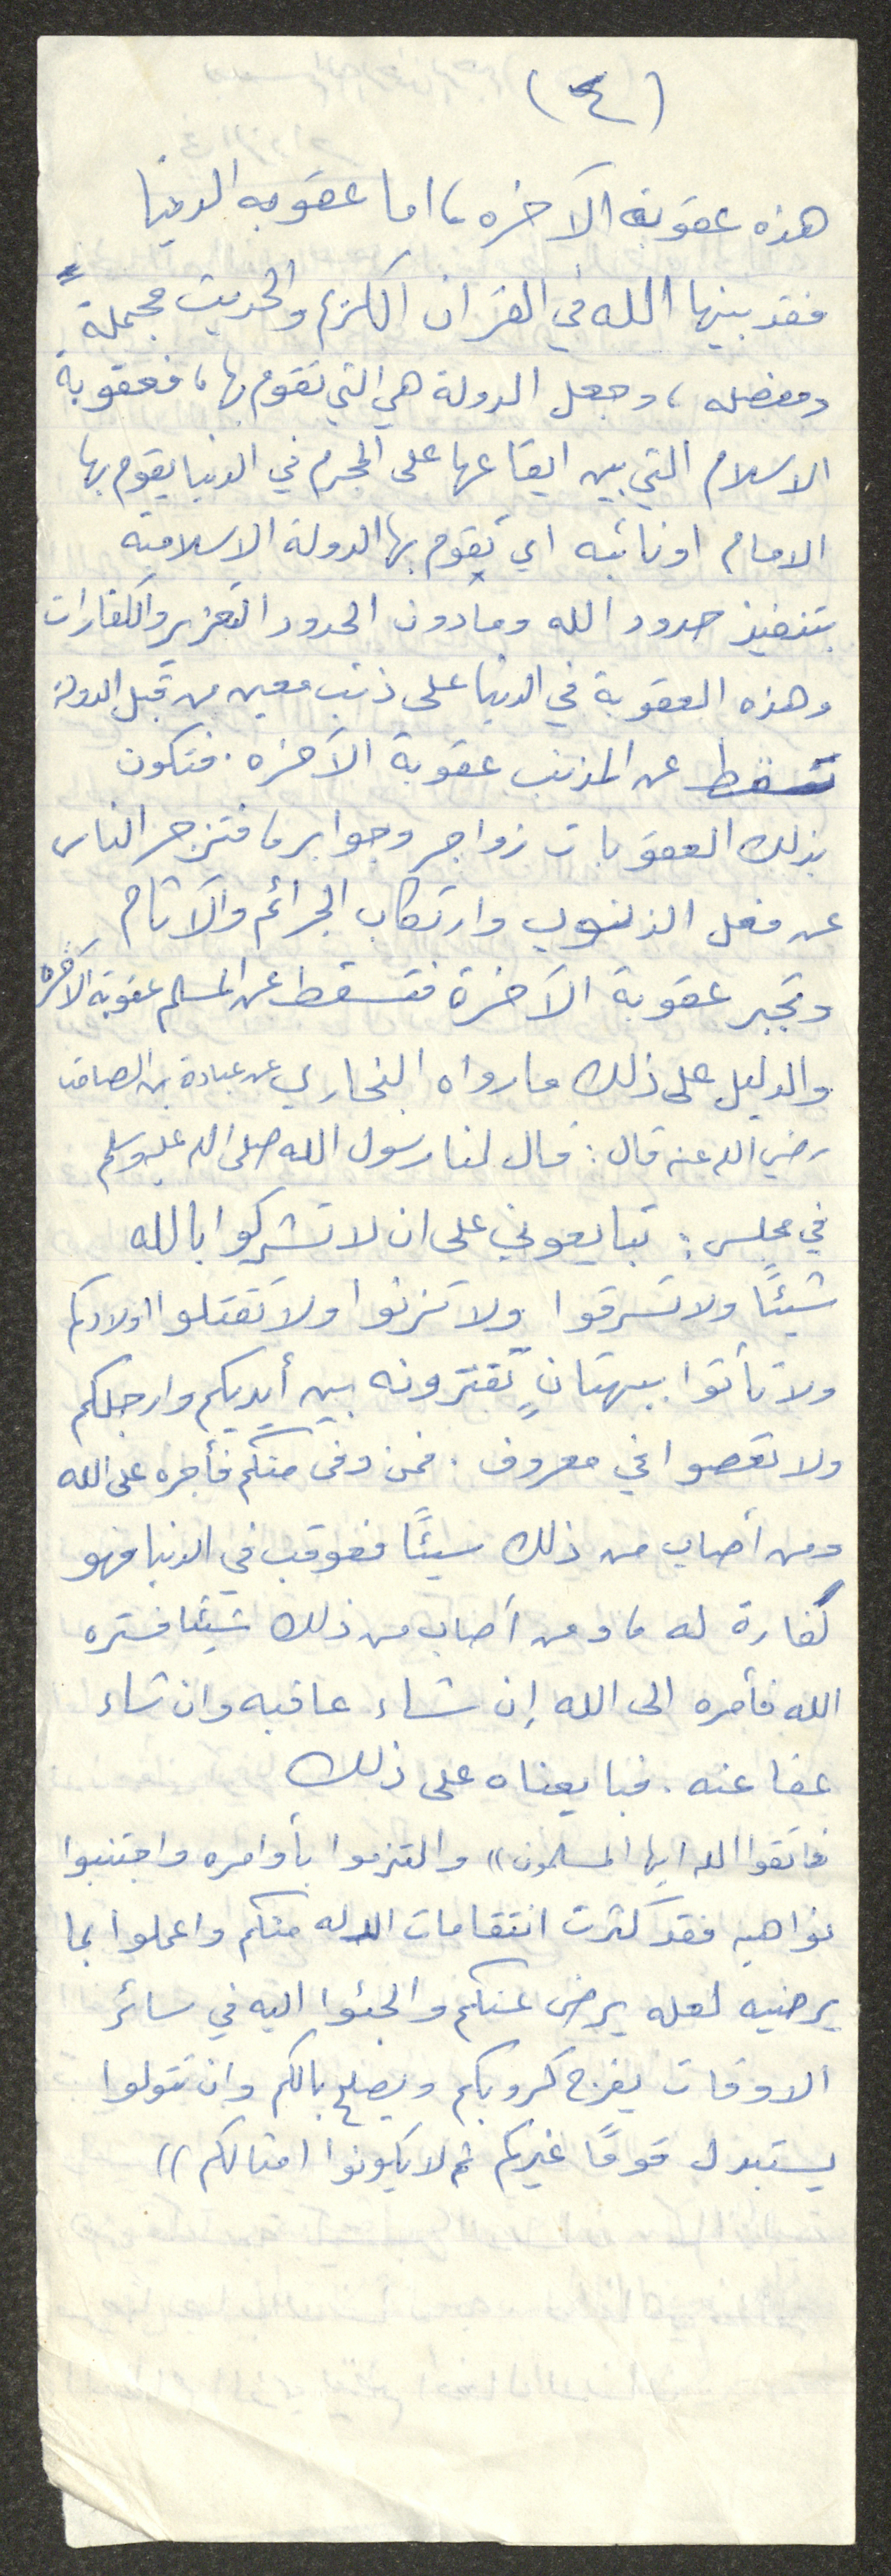 (٤)
هذه عقوبة الآخره، اما عقوبه الدنيا
فقد بينها الله في القرآن الكريم والحديث مجملةً
ومفصله، وجعل الدولة هي التي تقوم بها، فعقوبة
الاسلام التي بين ايقاعها على المجرم في الدنيا يقوم بها
الامام او نائبه اي تقوم بها الدولة الاسلامية
بتنفيذ حدود الله ومادون الحدود التعزير والكفارات
وهذه العقوبة في الدنيا على ذنب معين من قبل الدولة
تسقط عن المذنب عقوبة الآخره. فتكون
بذلك العقوبات زواجر وجوابر، فتزجر الناس
عن فعل الذنوب وارتكاب الجرائم والآثام
وتجبر عقوبة الآخرة فتسقط عن المسلم عقوبة الآخره
والدليل على ذلك ما رواه البخاري عن عبادة بن الصامت
رضي الله عنه قال: قال لنا رسول الله صلى الله عليه وسلم
في مجلس: تبايعوني على ان لا تشركوا بالله
شيئًا ولا تسرقوا ولا تزنوا ولا تقتلوا اولادكم
ولا تأتوا ببهتانٍ تفترونه بين أيديكم وارجلكم
ولا تعصوا في معروف. فمن وفى منكم فأجره على الله
ومن أصاب من ذلك سيئًا فعوقب في الدنيا فهو
كفارة له، ومن أصاب من ذلك شيئًا فستره
الله فأمره الى الله إن شاء عاقبه وان شاء
عفا عنه. فبايعناه على ذلك
فاتقوا الله ايها المسلمون)) والتزموا بأوامره واجتنبوا
نواهيه فقد كثرت انتقامات الله منكم واعملوا بما
يرضيه لعله يرضى عنكم والجئوا اليه في سائر
الاوقات يفرج كروبكم ويصلح بالكم وان تتولوا
يستبدل قومًا غيركم ثم لا يكونوا امثالكم))